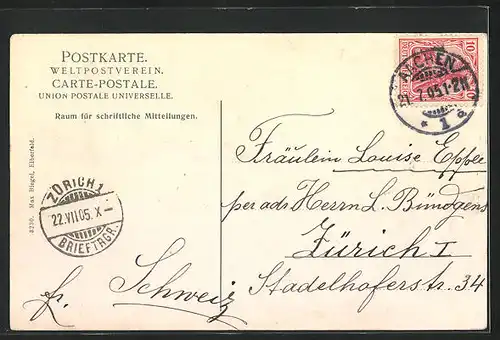 POSTKARTE.
WELTPOSTVEREIN.
CARTE-POSTALE.
UNION POSTALE UNIVERSELLE.
Raum für schriftliche Mitteilungen.
8230. Max Biegel, Elberfeld.
ZÜRICH 1
22.VII.05.X-
BRIEFTRGR.
10
AACHEN
7.05.1-2N
* 1 a
Fräulein Louise Eppee
per ads Herrn L. Bündgens
Zürich I
Stadelhoferstr. 34
fr. Schweiz